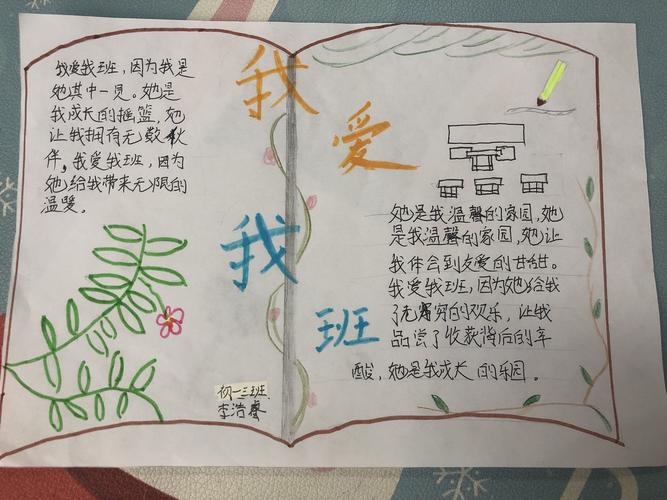 我爱我班
我爱我班，因为我是
她其中一员。她是
我成长的摇篮，她
让我拥有无数伙
伴。我爱我班，因为
她给我带来无限的
温暖。
初一三班
李浩睿
她是我温馨的家园，她
是我温馨的家园，她让
我体会到友爱的甘甜。
我爱我班，因为她给我
了无穷的欢乐，让我
品尝了收获背后的辛
酸，她是我成长的乐园。